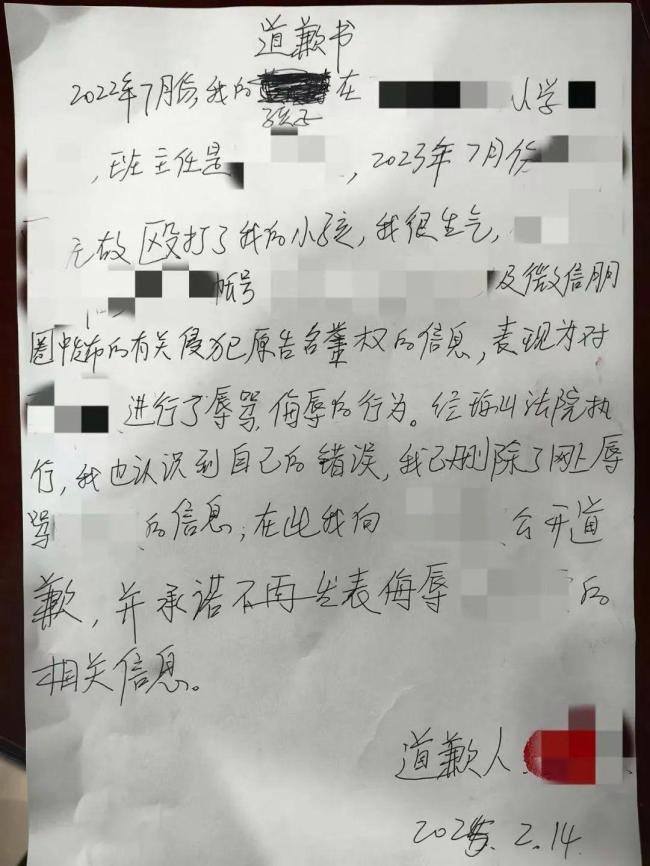 道歉书
2022年7月份,我的 在 小学
孩子
,班主任是 ,2023年7月份
无故殴打了我的小孩,我很生气,
帐号 及微信朋
圈中发布的有关侵犯原告名誉权的信息,表现为对
进行了辱骂,侮辱的行为。经梅山法院执
行,我也认识到自己的错误,我已删除了网上辱
骂 的信息,在此我向 公开道
歉,并承诺不再发表侮辱 的
相关信息。
道歉人
2025.2.14